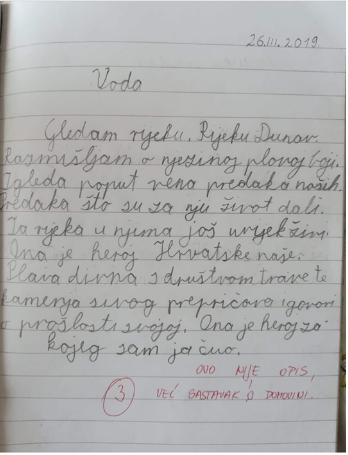 26.III.2019.
Voda
Gledam rijeku. Rijeku Dunav.
Razmišljam o njezinoj plavoj boji.
Izgleda poput vena predaka naših.
Predaka što su za nju život dali.
Ta rijeka u njima još uvijek živi.
Ona je heroj Hrvatske naše.
Plava divna s društvom trave te
kamenja sivog prepričava i govori
o prošlosti svojoj. Ona je heroj za
kojeg sam ja čuo.
OVO NIJE OPIS,
3 VEĆ SASTAVAK O DOMOVINI.